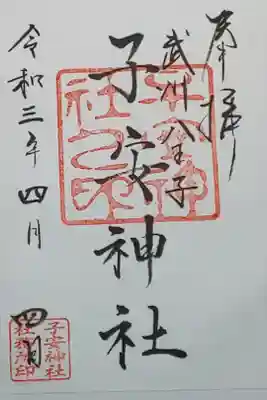 奉拝
武州八王子
子安神社
令和三年四月四日
子安神社
社務所印